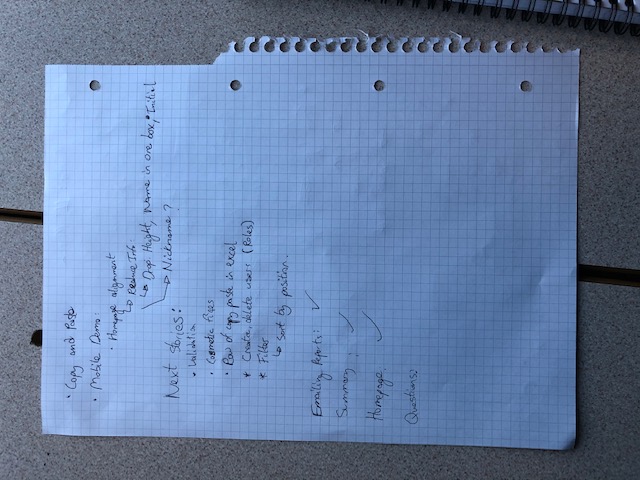 • Copy and Paste
• Mobile Demo:
• Homepage alignment
↳ Reduce Info:
↳ Drop. Height, Name in one box, • Initial
→ Nickname?
Next stories:
• Validation
• Cosmetic fixes
• Row of copy paste in excel
* Create, delete users (Roles)
* Filter
↳ Sort by position.
Emailing Reports: ✓
Summary: ✓
Homepage: ✓
Questions: